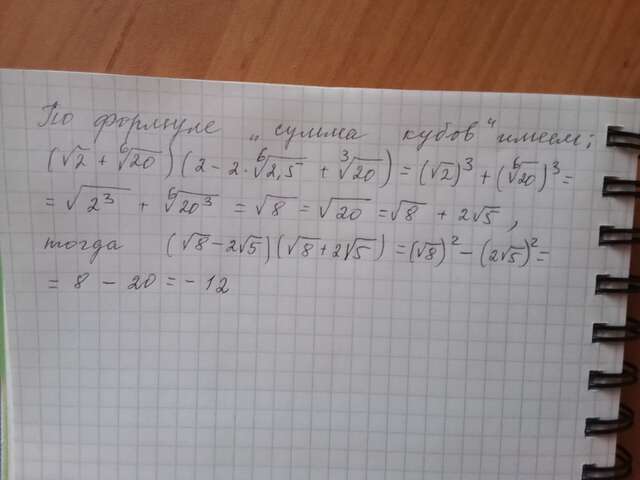 По формуле „сумма кубов“ имеем;
(√2 + ⁶√20)(2 - 2 · ⁶√2,5 + ³√20) = (√2)³ + (⁶√20)³ =
= √2³ + ⁶√20³ = √8 = √20 = √8 + 2√5 ,
тогда (√8 - 2√5)(√8 + 2√5) = (√8)² - (2√5)² =
= 8 - 20 = - 12